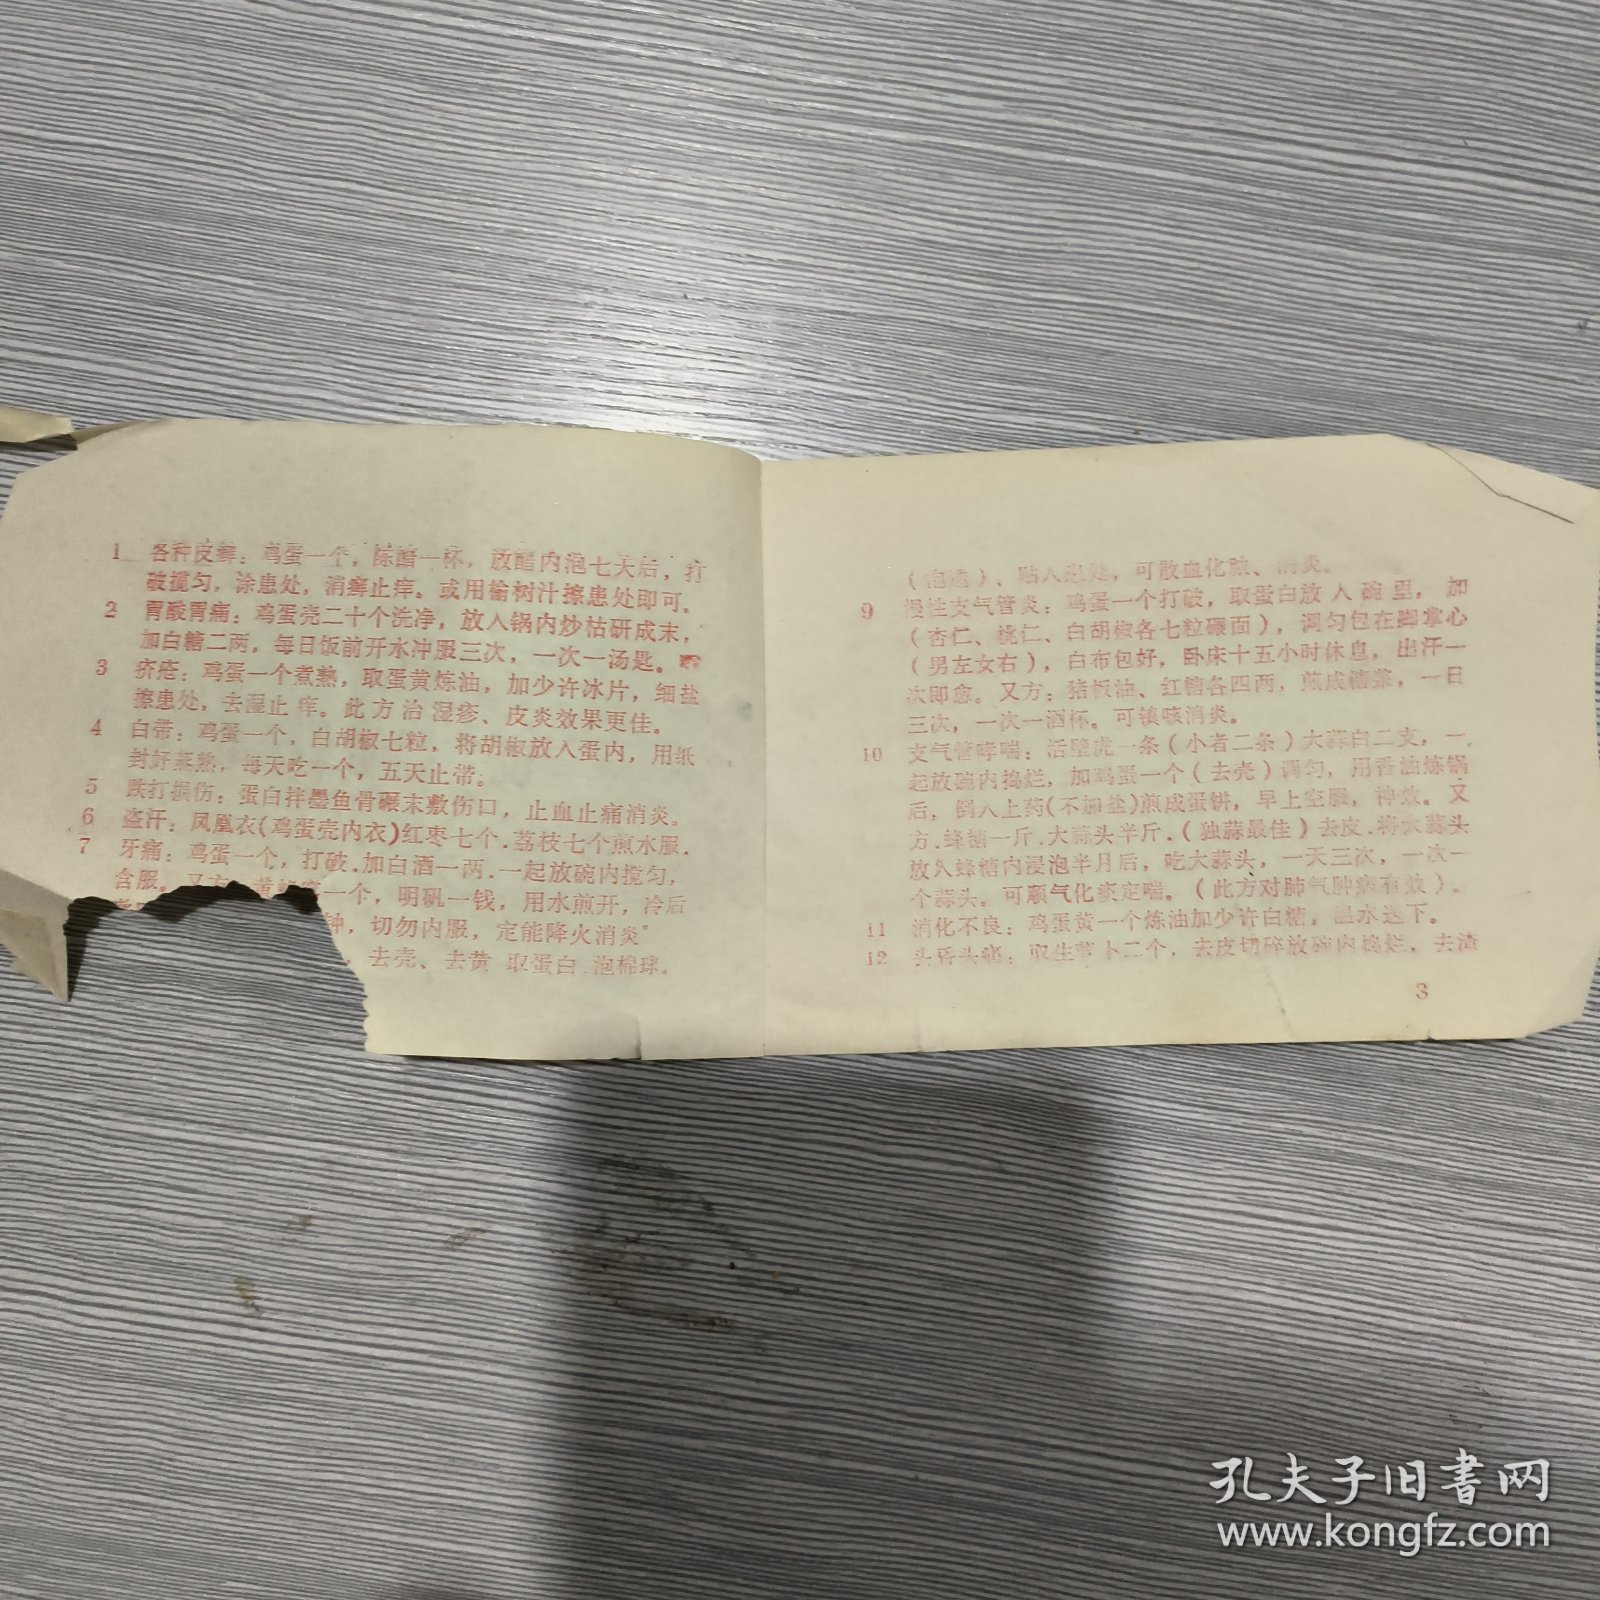 1 各种皮癣：鸡蛋一个，陈醋一杯，放醋内泡七天后，打
破搅匀，涂患处，消癣止痒。或用榆树汁擦患处即可。
2 胃酸胃痛：鸡蛋壳二十个洗净，放入锅内炒枯研成末，
加白糖二两，每日饭前开水冲服三次，一次一汤匙。
3 疥疮：鸡蛋一个煮熟，取蛋黄炼油，加少许冰片，细盐
擦患处，去湿止痒。此方治湿疹、皮炎效果更佳。
4 白带：鸡蛋一个，白胡椒七粒，将胡椒放入蛋内，用纸
封好蒸熟，每天吃一个，五天止带。
5 跌打损伤：蛋白拌墨鱼骨碾末敷伤口，止血止痛消炎。
6 盗汗：凤凰衣(鸡蛋壳内衣)红枣七个．荔枝七个煎水服．
7 牙痛：鸡蛋一个，打破．加白酒一两．一起放碗内搅匀，
含服。又方 一个，明矾一钱，用水煎开，冷后
钟，切勿内服，定能降火消炎。
，去壳、去黄 取蛋白．泡棉球。
（泡透）、贴入患处，可散血化脓、消炎。
9 慢性支气管炎：鸡蛋一个打破，取蛋白放入碗里，加
（杏仁、桃仁、白胡椒各七粒碾面），调匀包在脚掌心
（男左女右），白布包好，卧床十五小时休息，出汗一
次即愈。又方：猪板油、红糖各四两，煎成糖浆，一日
三次，一次一酒杯。可镇咳消炎。
10 支气管哮喘：活壁虎一条（小者二条）大蒜白二支，一
起放碗内捣烂，加鸡蛋一个（去壳）调匀，用香油炼锅
后，倒入上药(不加盐)煎成蛋饼，早上空服，神效。又
方、蜂糖一斤．大蒜头半斤．（独蒜最佳）去皮．将大蒜头
放入蜂糖内浸泡半月后，吃大蒜头，一天三次，一次一
个蒜头。可顺气化痰定喘。（此方对肺气肿病有效）。
11 消化不良：鸡蛋黄一个炼油加少许白糖，温水送下。
12 头昏头痛：取生萝卜二个，去皮切碎放碗内捣烂，去渣
3
孔夫子旧书网
www.kongfz.com